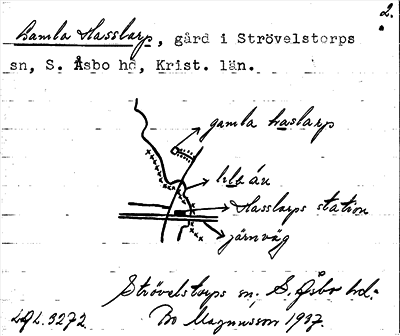 2.
Gamla Hasslarp, gård i Strövelstorps
sn, S. Åsbo hd, Krist. län.
gamla haslarp
ån
Hasslarps station
järnväg
Strövelstorps sn. S. Åsbo hd.
Bo Magnusson 1937.
LAL.3272